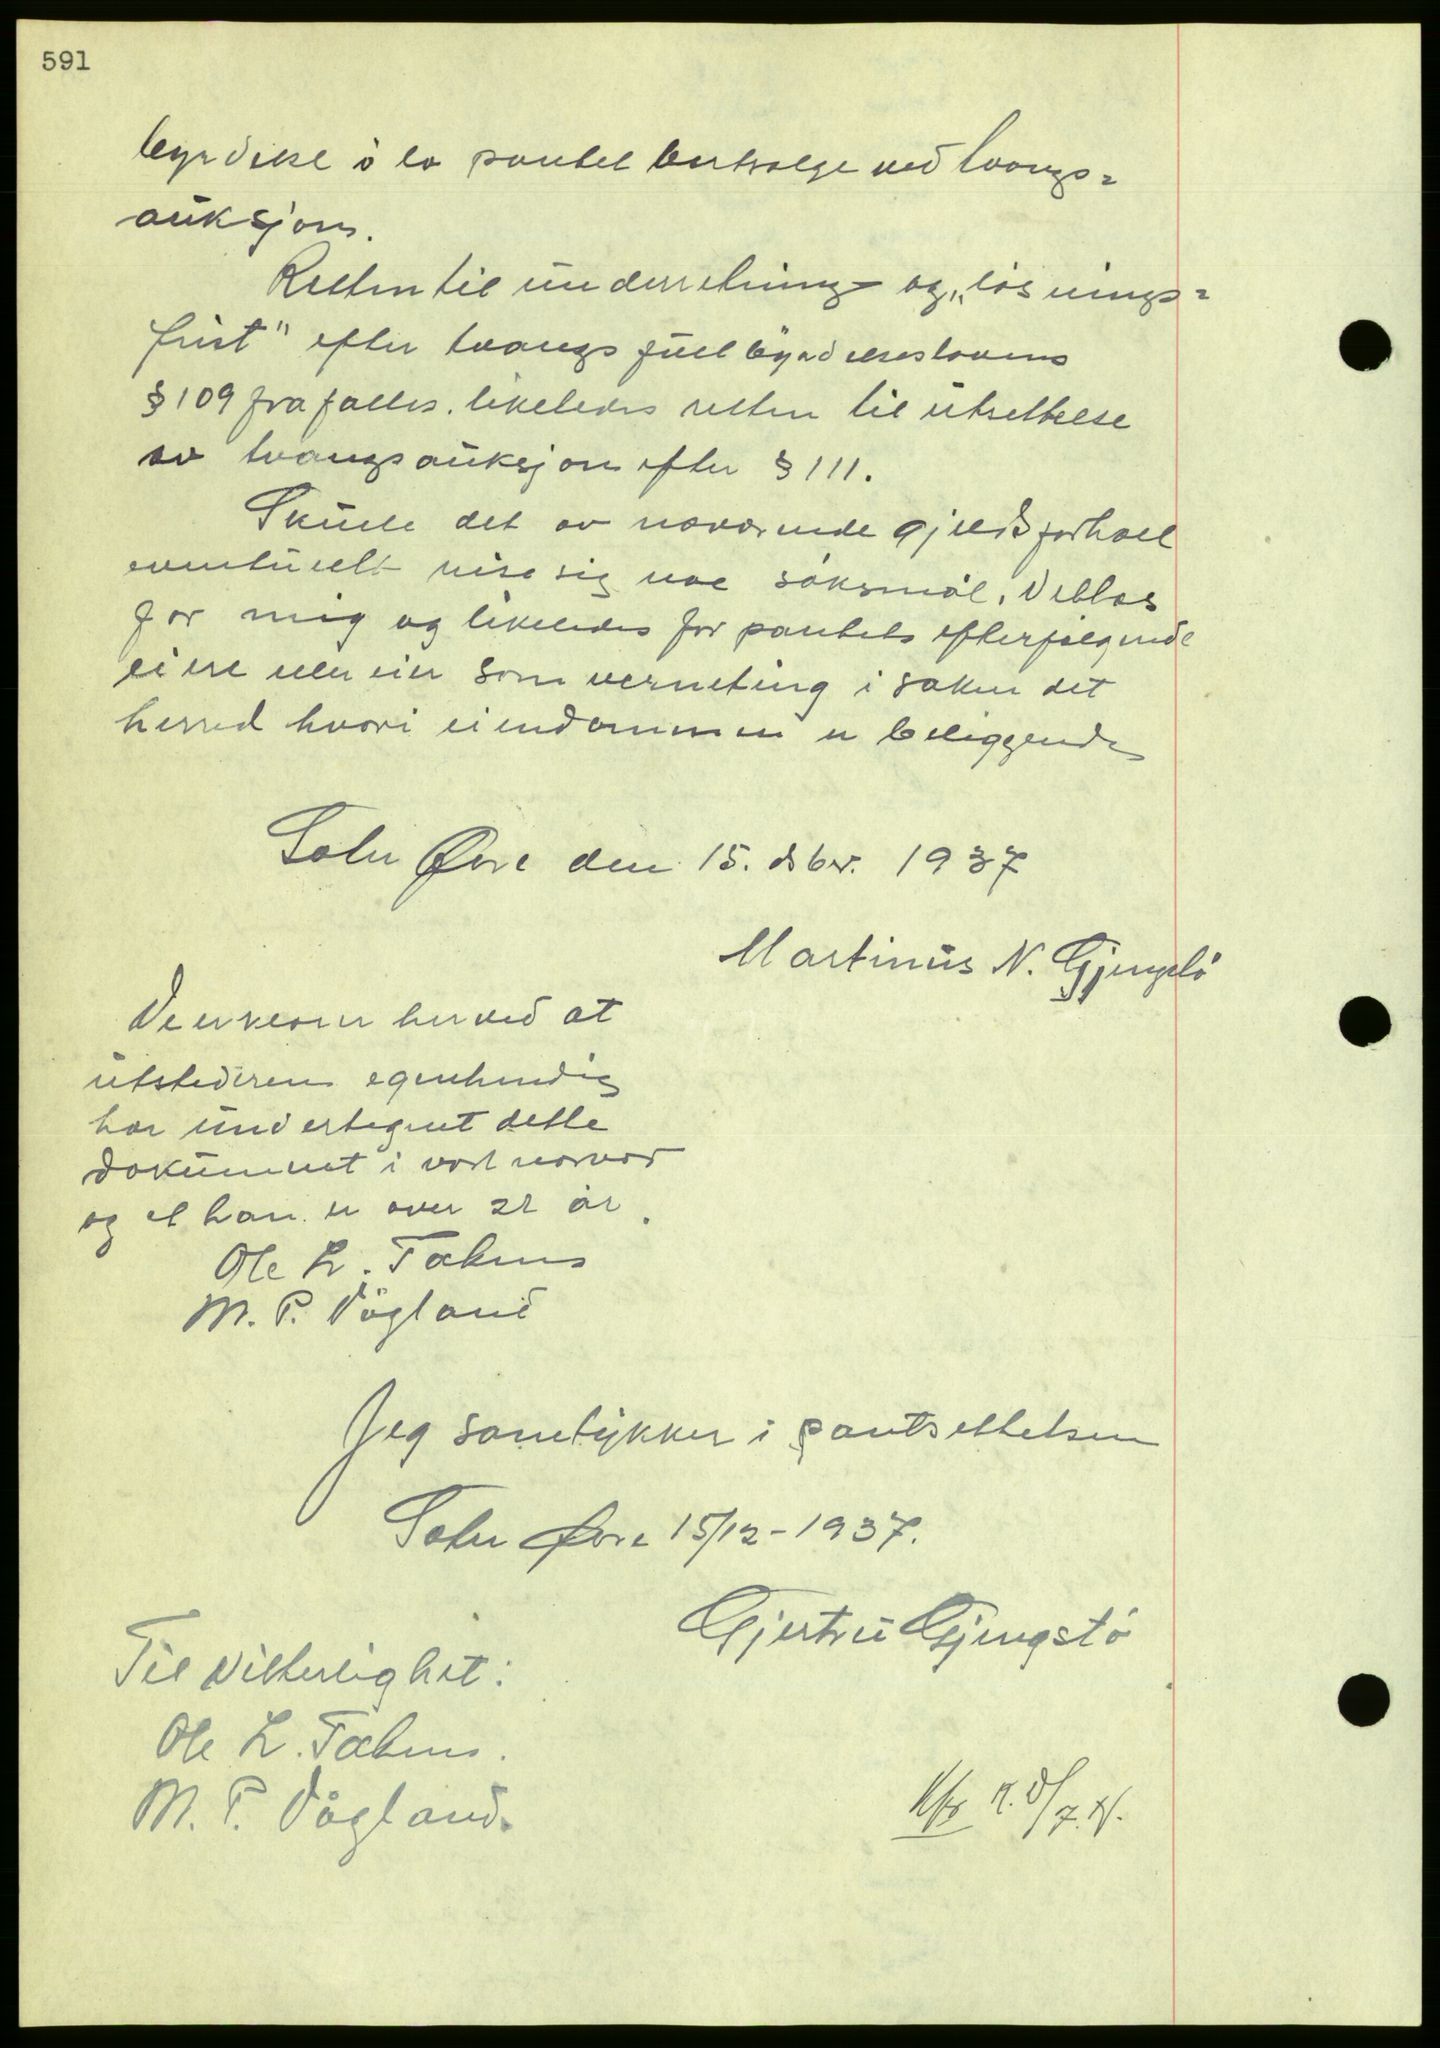 591
byrdelse å la pantet bortselge ved tvangs=
auksjon.
Retten til underretning og „løsnings=
frist" efter tvangsfullbyrdelseslovens
§ 109 frafalles. likeledes retten til utsettelse
av tvangsauksjon efter § 111.
Skulle det av nærværende gjeldsforhold
eventuelt reise sig noe søksmål, vedtas
for mig og likeledes for pantets efterfølgende
eiere eller eier som verneting i saken det
herred hvori eiendommen er beliggende
Øre den 15. dsbr. 1937
Martinus N. Gjengstø
Vi erklærer herved at
utstederen egenhendig
har undertegnet dette
dokument i vårt nærvær
og at han er over 21 år.
Ole L. Fahns
M. P. Vågland
Jeg samtykker i pantsettelsen
Øre 15/12-1937.
Gjertru Gjengstø
Til Vitterlighet:
Ole L. Fahns.
M. P. Vågland.